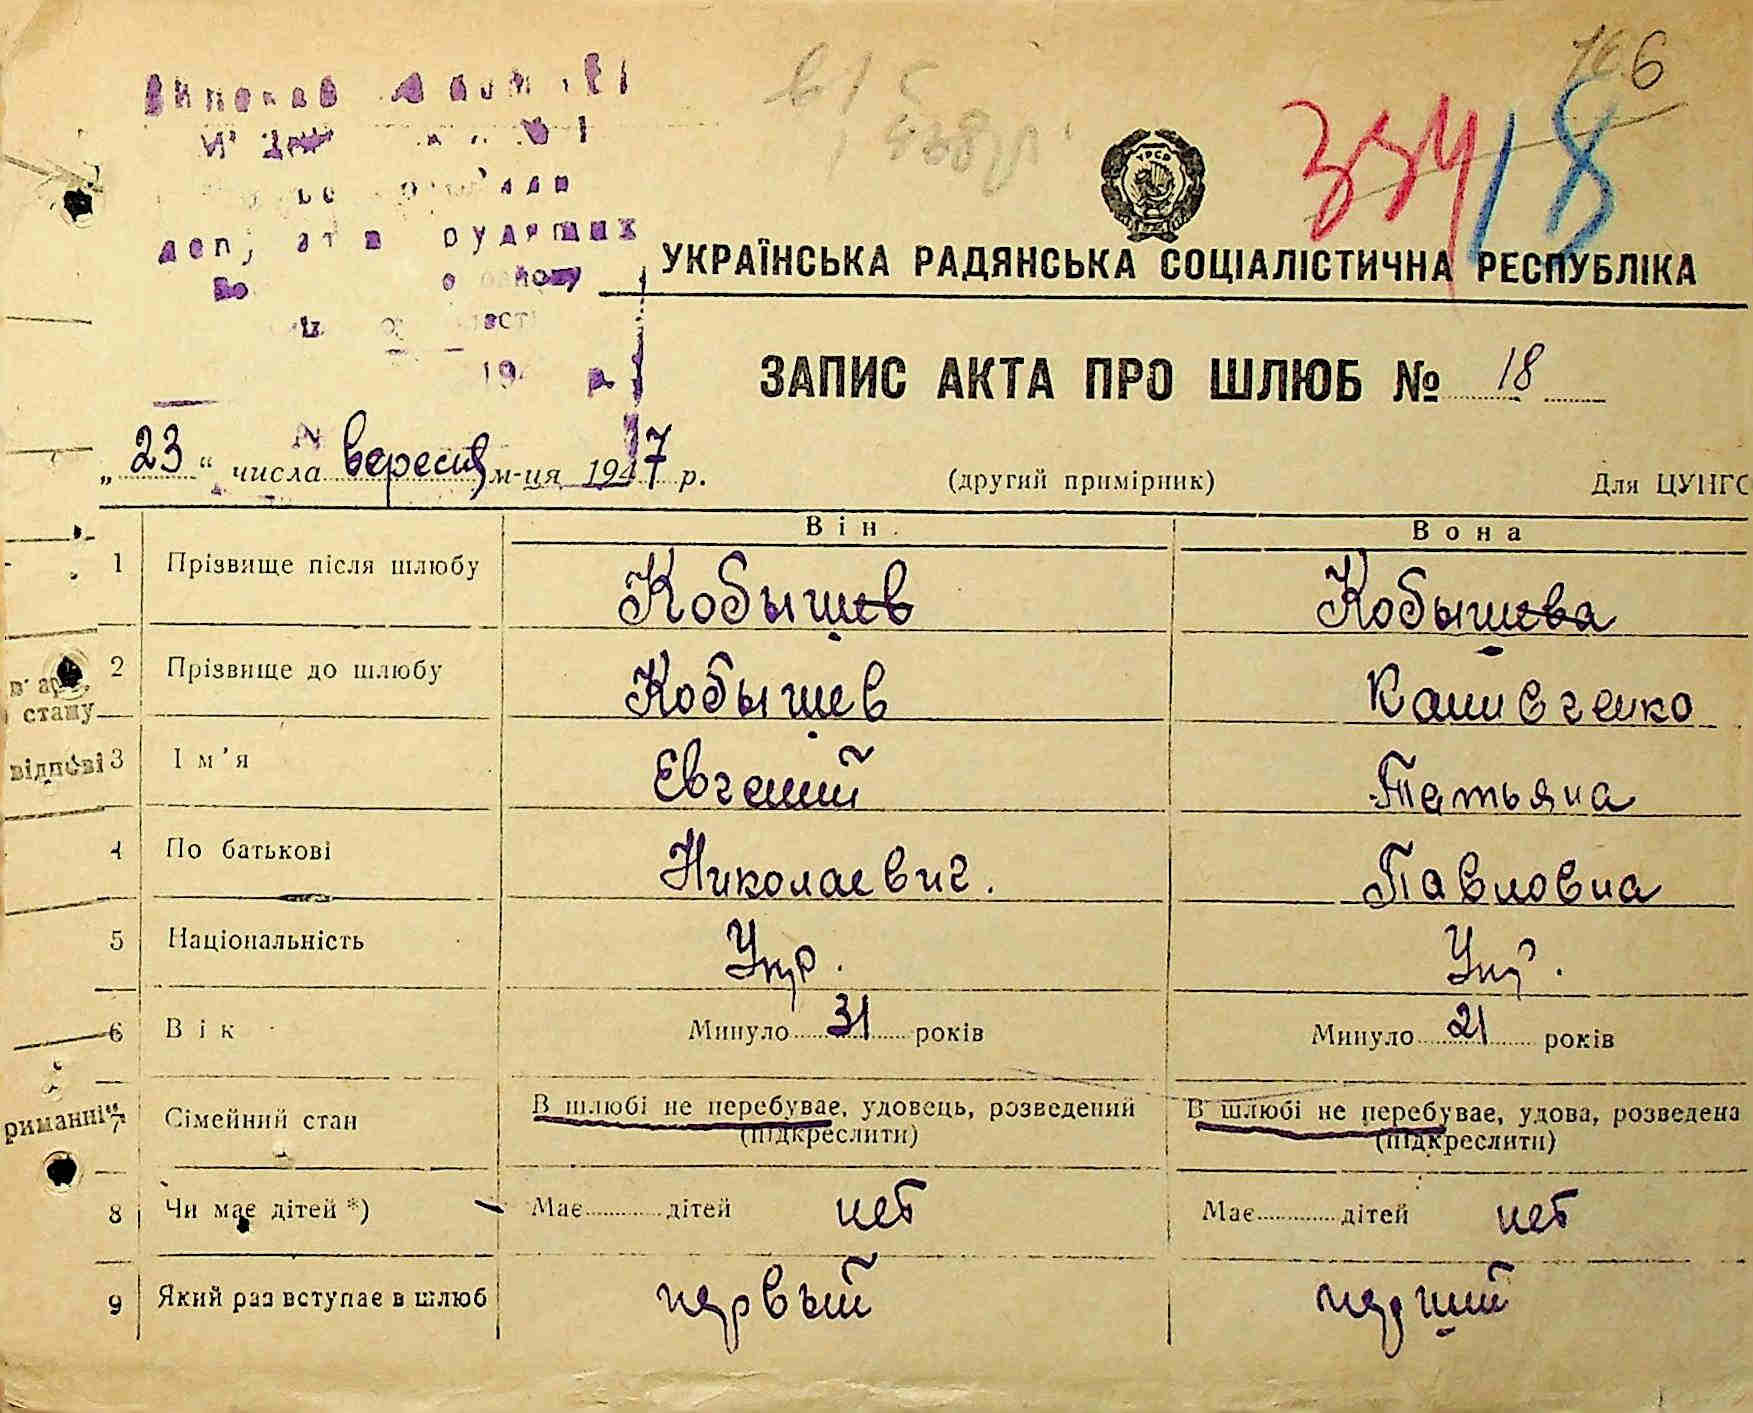 166
334 18
УРСР
УКРАЇНСЬКА РАДЯНСЬКА СОЦІАЛІСТИЧНА РЕСПУБЛІКА
ЗАПИС АКТА ПРО ШЛЮБ № 18
„23“ числа вересня м-ця 1947 р.
(другий примірник)
Для ЦУНГО
Він
Вона
1 Прізвище після шлюбу Кобышев Кобышева
2 Прізвище до шлюбу Кобышев
3 Ім'я Евгений Татьяна
4 По батькові Николаевич. Павловна
5 Національність Укр. Укр.
6 Вік Минуло 31 років Минуло 21 років
7 Сімейний стан В шлюбі не перебуває, удовець, розведений В шлюбі не перебуває, удова, розведена
(підкреслити) (підкреслити)
8 Чи має дітей *) Має дітей нет Має дітей нет
9 Який раз вступає в шлюб первый перший
стану
відпові
риманні